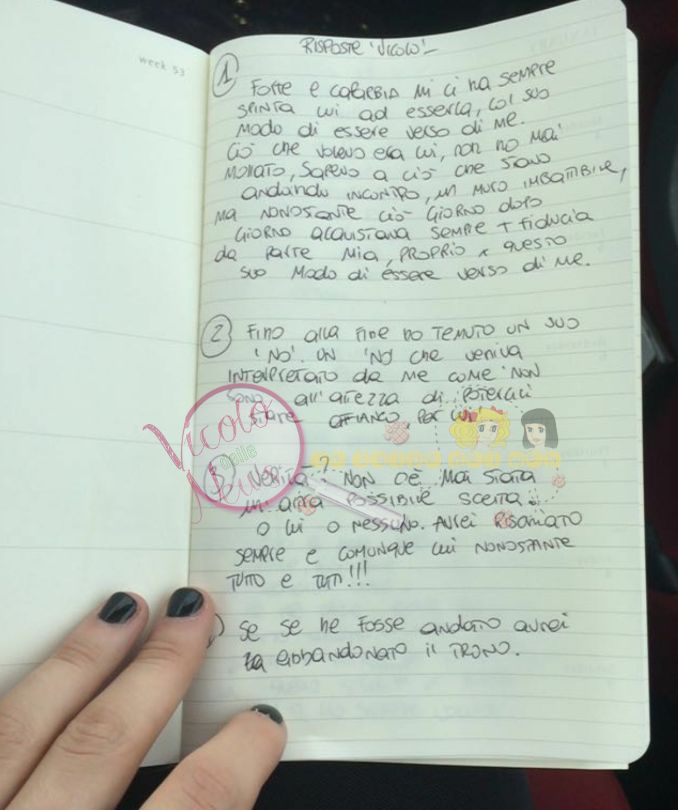 week 53
RISPOSTE 'VICOLO'-
1 FORTE E CAPARBIA MI CI HA SEMPRE
SPINTA LUI ad ESSERLA, COL SUO
MODO di ESSERE VERSO DI ME.
CIÒ CHE VOLEVO ERA LUI, NON HO MAI
MOLLATO, SAPEVO A CIÒ CHE STAVO
ANDANDO INCONTRO, UN MURO IMBATTIBILE,
MA NONOSTANTE CIÒ GIORNO DOPO
GIORNO ACQUISTAVA SEMPRE + FIDUCIA
da PARTE MIA, PROPRIO x QUESTO
SUO MODO di ESSERE VERSO DI ME.
2 FINO ALLA FINE HO TEMUTO UN SUO
'NO'. UN 'NO' CHE VENIVA
INTERPRETATO da ME COME 'NON
SONO ALL'ALTEZZA di POTERCI
STARE AFFIANCO, PER LUI
Vicolo
delle
News
3 VERITÀ? NON C'È MAI STATA
UN'ALTRA POSSIBILE SCELTA.
O LUI O NESSUNO. AVREI RISCHIATO
SEMPRE E COMUNQUE LUI NONOSTANTE
TUTTO E TUTTI!!!
) SE SE NE FOSSE ANDATO AVREI
ABBANDONATO IL TRONO.